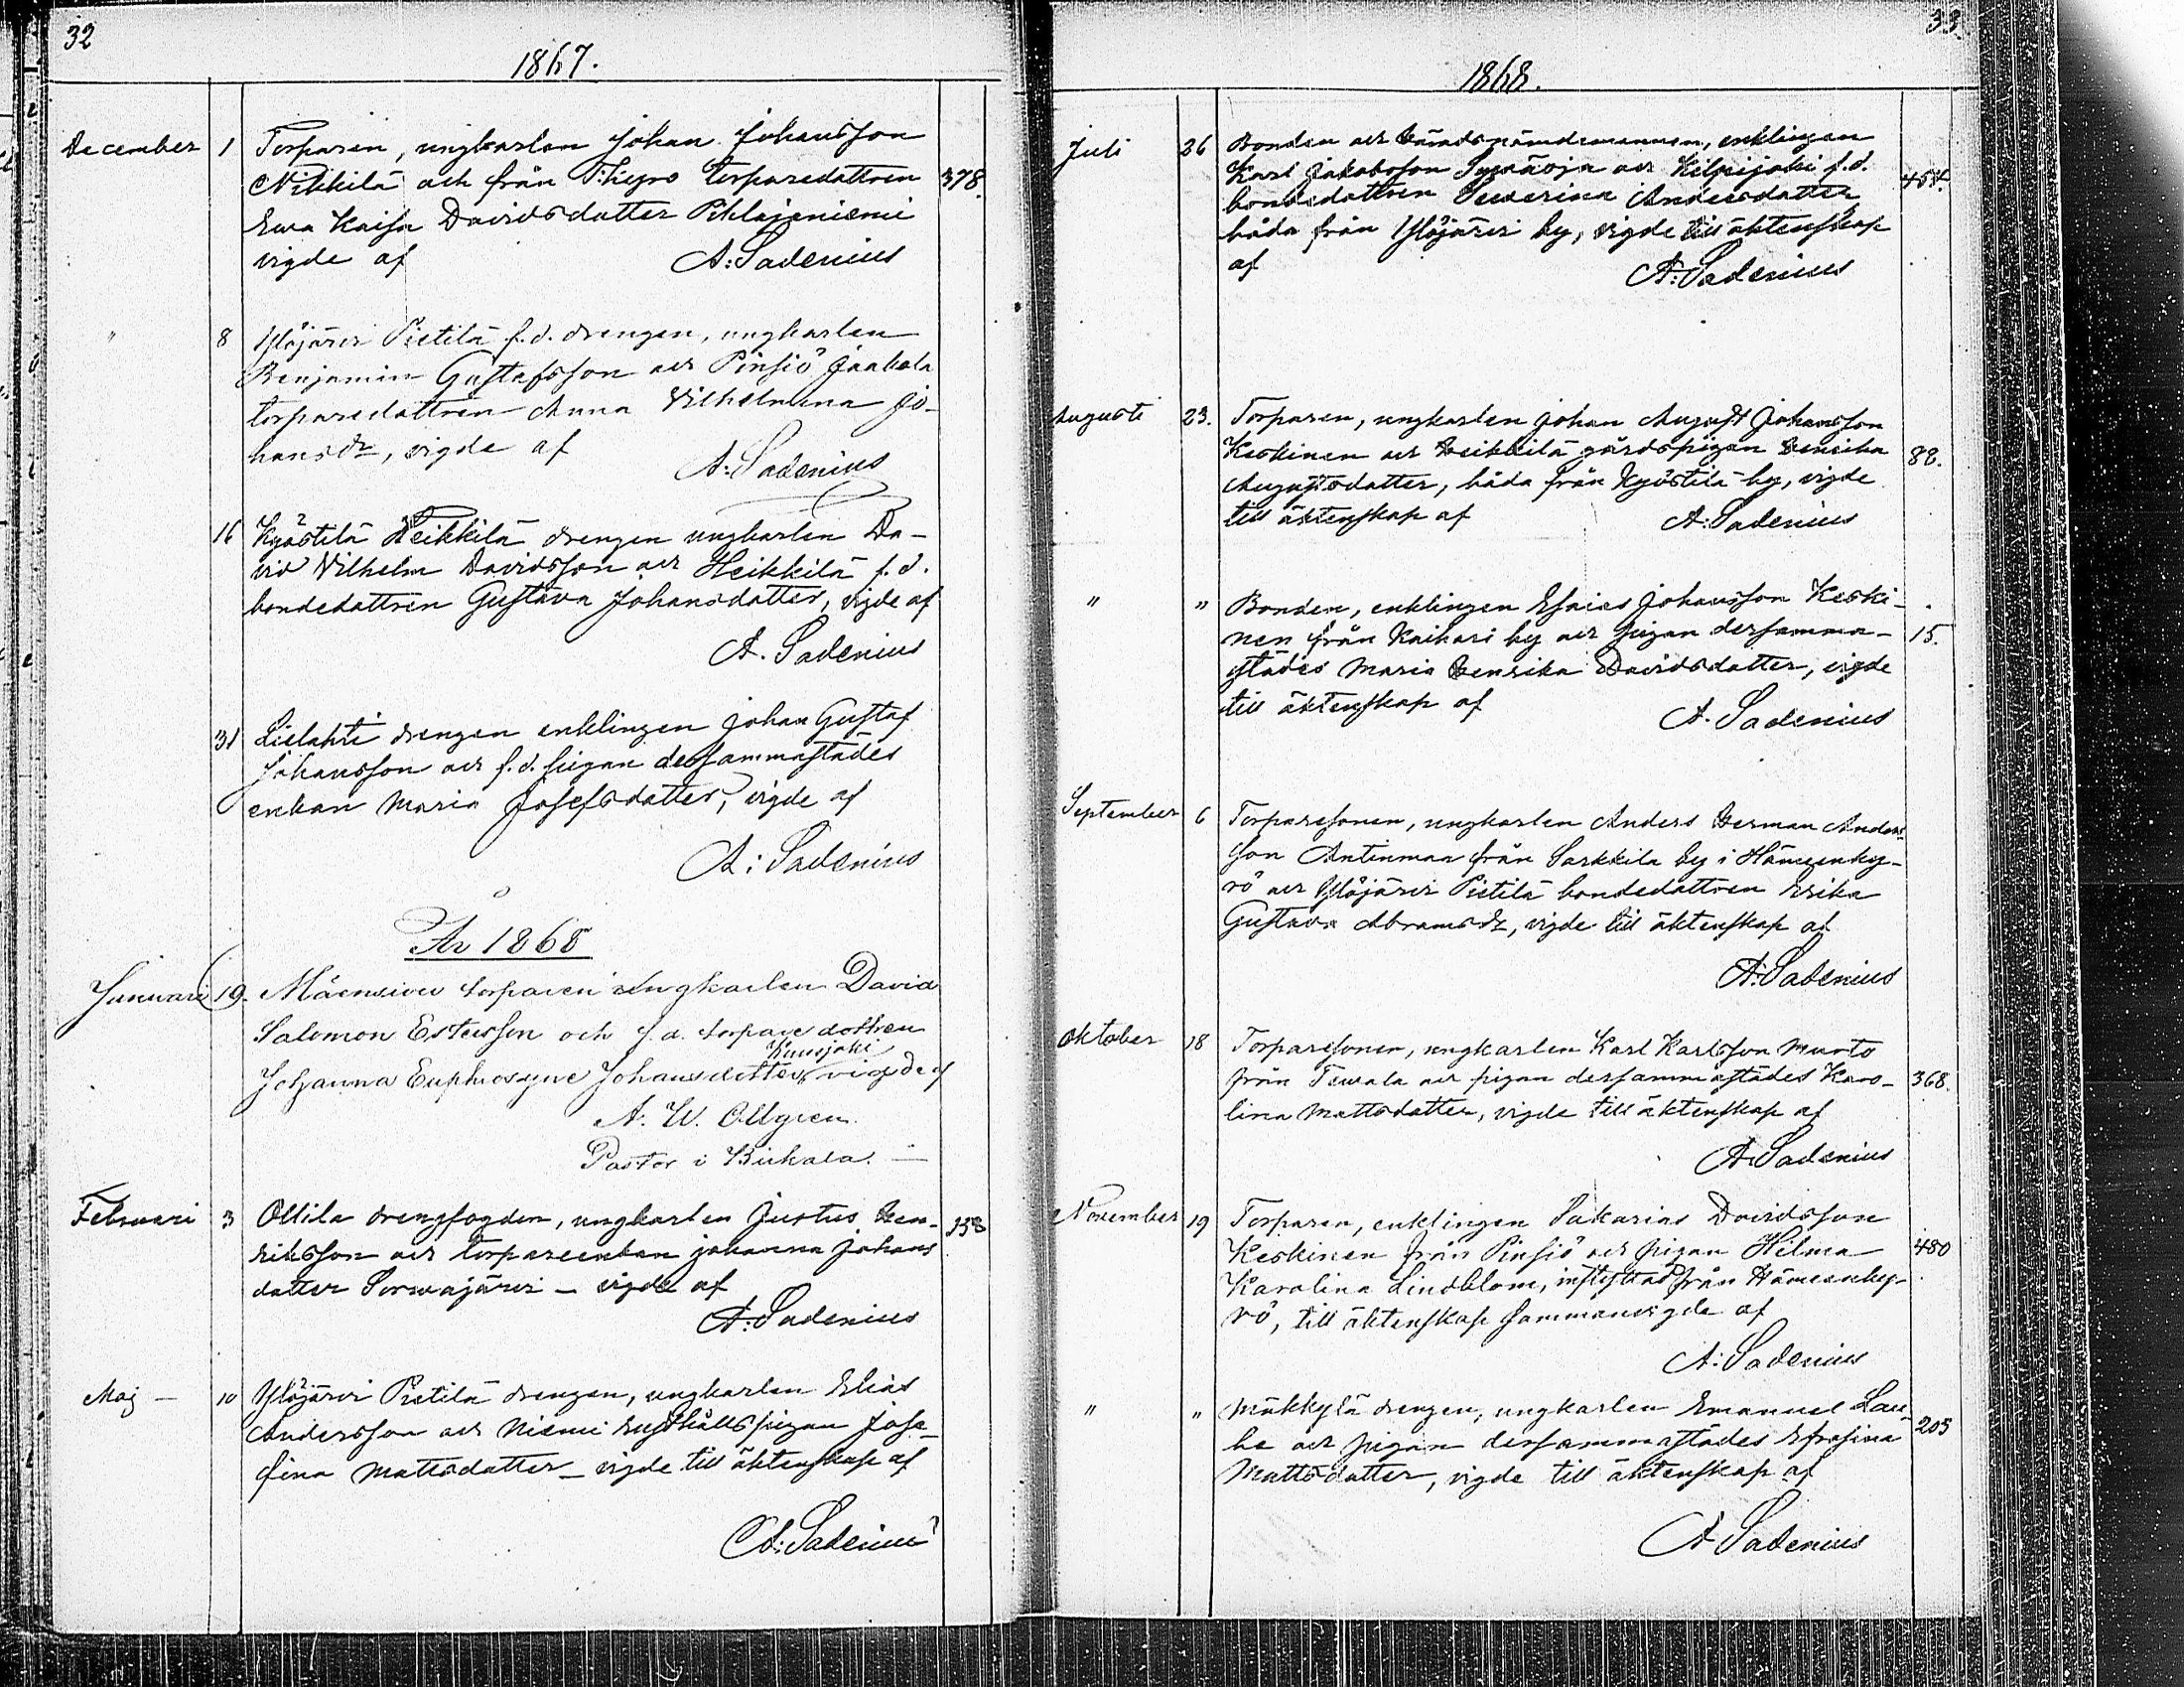 32
1867.
December 1 Torparen, ungkarlen Johan Johansson
Nikkilä och från T:kyro torparedottren 378.
Ewa Kaisa Davidsdotter Pihlajaniemi
vigde af A: Sadenius
" 8 Ylöjärvi Pietilä f.d. drengen, ungkarlen
Benjamin Gustafsson och Pinsiö Jaakola
torparedottren Anna Vilhelmina Jo-
hansdr, vigde af
A: Sadenius
16 Kyöstilä Heikkilä drengen ungkarlen Da-
vid Vilhelm Davidsson och Heikkilä f.d.
bondedottren Gustava Johansdotter, vigde af
A. Sadenius
31 Lielahti drengen enklingen Johan Gustaf
Johansson och f.d. pigan dersammastädes
enkan Maria Josefsdotter, vigde af
A: Sadenius
År 1868
Januari 19. Mäensivu torparen ungkarlen David
Salomon Estersson och f.d. torpare dottren
Kuusjoki
Johanna Euphrosyne Johansdotter, vigde af
A. W. Ollgren.
Pastor i Birkala. —
Februari 3 Ollila drengfogden, ungkarlen Justus Hen- 158
riksson och torpareenkan Johanna Johans
dotter Sorvajärvi — vigde af
A: Sadenius
Maj — 10 Ylöjärvi Pietilä drengen, ungkarlen Elias
Andersson och Niemi rusthållspigan Jose-
fina Mattsdotter — vigde till äktenskap af
A: Sadenius
33.
1868.
Juli 26 Bonden och häradsnämndemannen, enklingen
Karl Jakobsson och Kilpijoki f.d. 454.
bondedottren Severina Andersdotter
båda från Ylöjärvi by, vigde till äktenskap
af
A: Sadenius
Augusti 23. Torparen, ungkarlen Johan August Johansson
Keskinen och Heikkilä gårdspigan Henrika 88.
Augustsdotter, båda från Kyöstilä by, vigde
till äktenskap af A: Sadenius
" " Bonden, enklingen Esaias Johansson Keski-
nen från Kaihari by och pigan dersamma- 15.
städes Maria Henrika Davidsdotter, vigde
till äktenskap af
A. Sadenius
September 6 Torparesonen, ungkarlen Anders Herman Anders-
son Antinmaa från Sarkkila by i Hämeenky-
rö och Ylöjärvi Pietilä bondedottren Erika
Gustava Abramsdr, vigde till äktenskap af
A: Sadenius
Oktober 18 Torparesonen, ungkarlen Karl Karlsson Murto
från Teivala och pigan dersammastädes Karo- 368.
lina Mattsdotter, vigde till äktenskap af
A: Sadenius
November 19 Torparen, enklingen Sakarias Davidsson
Keskinen från Pinsiö och pigan Hilma 480
Karolina Lindblom, inflyttad från Hämeenky-
rö, till äktenskap sammanvigde af
A: Sadenius
" " Mäkkylä drengen, ungkarlen Emanuel Lau-
he och pigan dersammastädes Efrosina 205
Mattsdotter, vigde till äktenskap af
A Sadenius